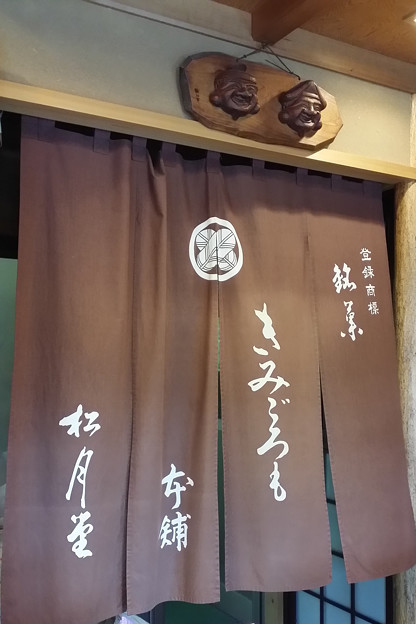 登録商標
銘菓
きみごろも
本舗
松月堂